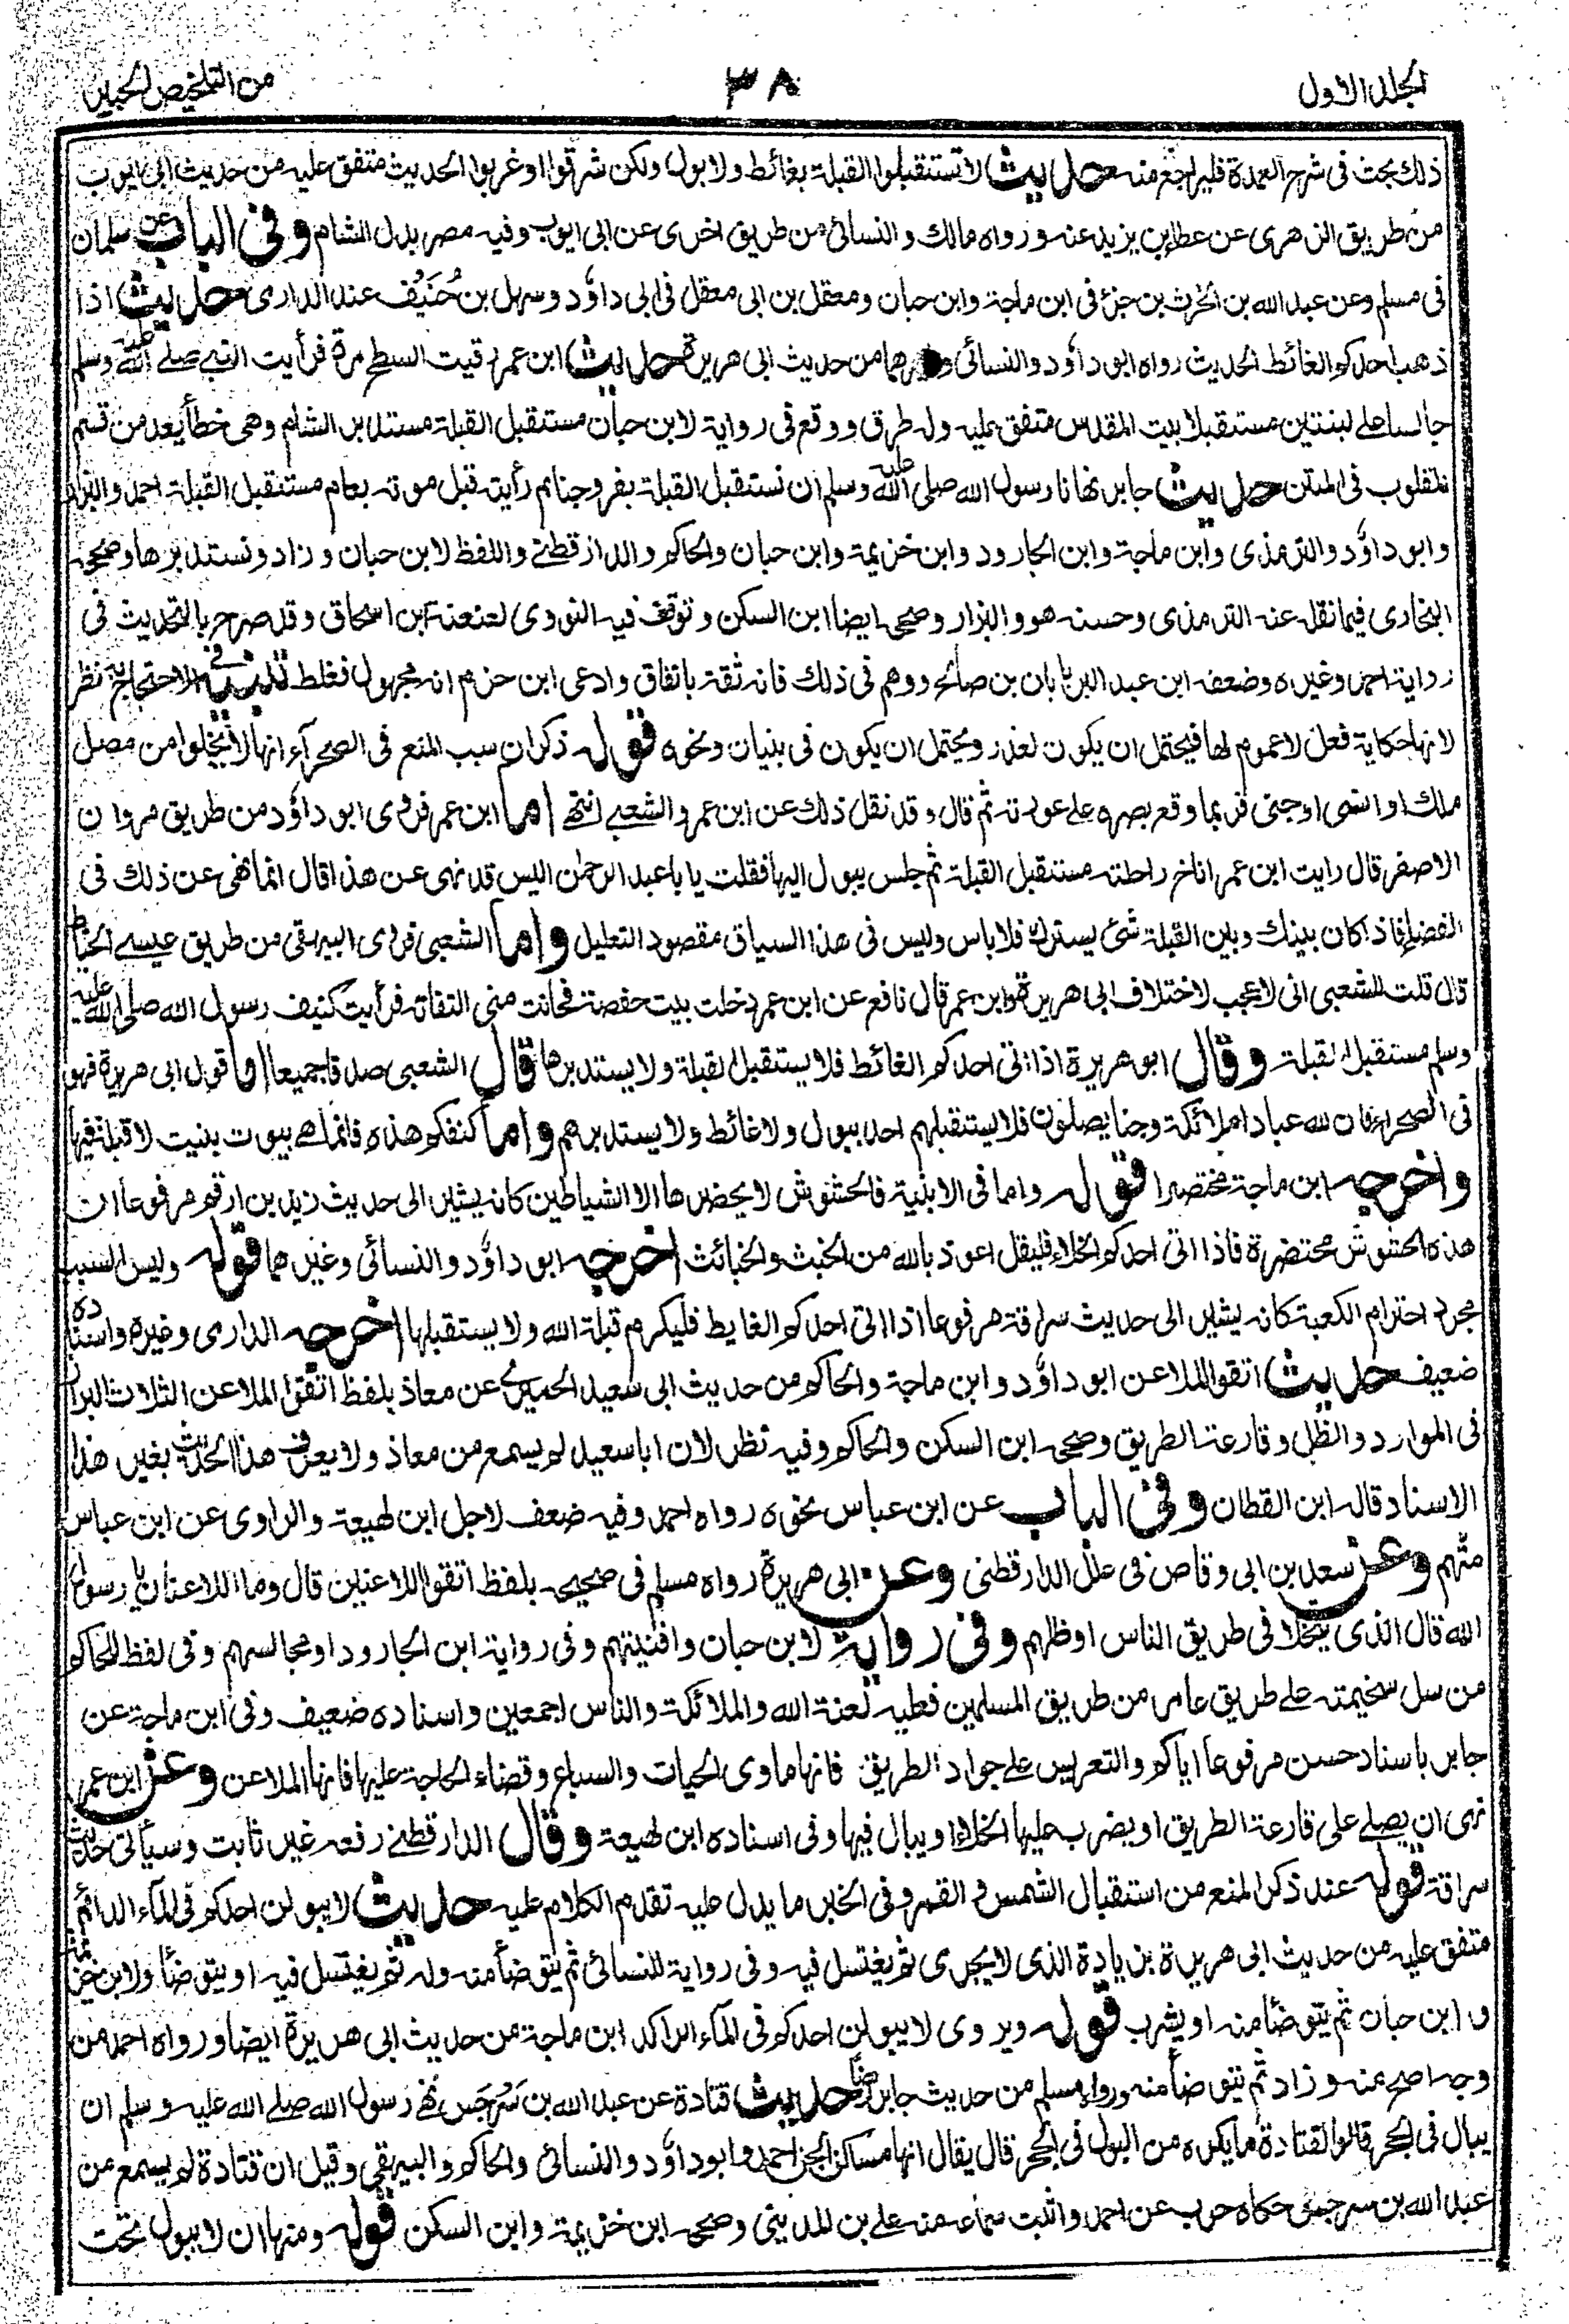 المجلد الاول
٣٨
من التلخيص الحبير
ذلك بحث فى شرح العمدة فليراجع منه حديث لا تستقبلوا القبلة بغائط ولا بول ولكن شرقوا او غربوا الحديث متفق عليه من حديث ابى ايوب
من طريق الزهرى عن عطاء بن يزيد عنه ورواه مالك والنسائى من طريق اخرى عن ابى ايوب وفيه مصر بدل الشام وفى الباب عن سلمان
فى مسلم وعن عبد الله بن الحرث بن جزء فى ابن ماجة وابن حبان ومعقل بن ابى معقل فى ابى داؤد وسهل بن حُنَيف عند الدارى حديث اذا
ذهب احدكم الغائط الحديث رواه ابو داؤد والنسائى وغيرهما من حديث ابى هريرة حديث ابن عمر رقيت السطح مرة فرأيت النبى صلى الله عليه وسلم
جالسا على لبنتين مستقبلا بيت المقدس متفق عليه وله طرق ووقع فى رواية لابن حبان مستقبل القبلة مستدبر الشام وهى خطأ يعد من قسم
المقلوب فى المتن حديث جابر نهانا رسول الله صلى الله عليه وسلم ان نستقبل القبلة بفروجنا ثم رأيته قبل موته بعام مستقبل القبلة احمد والبزار
وابو داؤد والترمذى وابن ماجة وابن الجارود وابن خزيمة وابن حبان والحاكم والدارقطنى واللفظ لابن حبان وزاد ونستدبرها وصححه
البخارى فيما نقل عنه الترمذى وحسنه هو والبزار وصححه ايضا ابن السكن وتوقف فيه النووى لعنعنة ابن اسحاق وقد صرح بالتحديث فى
رواية احمد وغيره وضعفه ابن عبد البر بابان بن صالح ووهم فى ذلك فانه ثقة باتفاق وادعى ابن حزم انه مجهول فغلط تنبيه فى الاحتجاج به نظر
لانها حكاية فعل لا عموم لها فيحتمل ان يكون لعذر ويحتمل ان يكون فى بنيان ونحوه قوله ذكر ان سبب المنع فى الصحراء انها لا يخلوا من مصل
ملك او انسى او جنى فربما وقع بصره على عورته ثم قال وقد نقل ذلك عن ابن عمر والشعبى انتهى اما ابن عمر فروى ابو داؤد من طريق مروان
الاصفر قال رايت ابن عمر اناخ راحلته مستقبل القبلة ثم جلس يبول اليها فقلت يا باعبد الرحمٰن اليس قد نهى عن هذا قال انما نهى عن ذلك فى
الفضاء فاذا كان بينك وبين القبلة شئ يسترك فلا باس وليس فى هذا السياق مقصود التعليل واما الشعبى فروى البيهقى من طريق عيسى الحناط
قال قلت للشعبى انى لاعجب لاختلاف ابى هريرة وابن عمر قال نافع عن ابن عمر دخلت بيت حفصة فحانت منى التفاتة فرأيت كنيف رسول الله صلى الله عليه
وسلم مستقبل القبلة وقال ابو هريرة اذا اتى احدكم الغائط فلا يستقبل القبلة ولا يستدبرها قال الشعبى صدقا جميعا اما قول ابى هريرة فهو
فى الصحراء فان لله عبادا ملائكة وجنا يصلون فلا يستقبلهم احد ببول ولا غائط ولا يستدبرهم واما كنفكم هذه فانما هى بيوت بنيت لا قبلة فيها
واخرجه ابن ماجة مختصرا قوله واما فى الابنية فالحشوش لا يحضرها الا الشياطين كانه يشير الى حديث زيد بن ارقم مرفوعا ان
هذه الحشوش محتضرة فاذا اتى احدكم الخلاء فليقل اعوذ بالله من الخبث والخبائث اخرجه ابو داؤد والنسائى وغيرهما قوله وليس السبب
مجرد احترام الكعبة كانه يشير الى حديث سراقة مرفوعا اذا اتى احدكم الغايط فليكرم قبلة الله ولا يستقبلها اخرجه الدارى وغيره واسناده
ضعيف حديث اتقوا الملاعن ابو داؤد وابن ماجة والحاكم من حديث ابى سعيد الحميرى عن معاذ بلفظ اتقوا الملاعن الثلاث البراز
فى الموارد والظل وقارعة الطريق وصححه ابن السكن والحاكم وفيه نظر لان ابا سعيد لم يسمع من معاذ ولا يعرف هذا الحديث بغير هذا
الاسناد قاله ابن القطان وفى الباب عن ابن عباس نحوه رواه احمد وفيه ضعف لاجل ابن لهيعة والراوى عن ابن عباس
متهم وعن سعد بن ابى وقاص فى علل الدارقطنى وعن ابى هريرة رواه مسلم فى صحيحه بلفظ اتقوا اللاعنين قال وما اللاعنان يا رسول
الله قال الذى يتخلا فى طريق الناس او ظلهم وفى رواية لابن حبان وافنيتهم وفى رواية ابن الجارود او مجالسهم وفى لفظ للحاكم
من سل سخيمته على طريق عامر من طريق المسلمين فعليه لعنة الله والملائكة والناس اجمعين واسناده ضعيف وفى ابن ماجة عن
جابر باسناد حسن مرفوعا اياكم والتعريس على جواد الطريق فانها ماوى الحيات والسباع وقضاء الحاجة عليها فانها الملاعن وعن ابن عمر
نهى ان يصلى على قارعة الطريق او يضرب عليها الخلاء او يبال فيها وفى اسناده ابن لهيعة وقال الدارقطنى رفعه غير ثابت وسيأتى حديث
سراقة قوله عند ذكر المنع من استقبال الشمس والقمر وفى الخبر ما يدل عليه تقدم الكلام عليه حديث لا يبولن احدكم فى الماء الدائم
متفق عليه من حديث ابى هريرة بزيادة الذى لا يجرى ثم يغتسل فيه وفى رواية للنسائى ثم يتوضأ منه وله ثم يغتسل فيه او يتوضأ ولابن خزيمة
وابن حبان ثم يتوضأ منه او يشرب قوله ويروى لا يبولن احدكم فى الماء الراكد ابن ماجة من حديث ابى هريرة ايضا ورواه احمد من
وجه اصح منه وزاد ثم يتوضأ منه ورواه مسلم من حديث جابر ايضا حديث قتادة عن عبد الله بن سَرْجَس نهى رسول الله صلى الله عليه وسلم ان
يبال فى الجحر قالوا لقتادة ما يكره من البول فى الجحر قال يقال انها مساكن الجن احمد وابو داؤد والنسائى والحاكم والبيهقى وقيل ان قتادة لم يسمع من
عبد الله بن سرجس حكاه حرب عن احمد واثبت سماعه منه على بن المدينى وصححه ابن خزيمة وابن السكن قوله ومنها ان لا يبول تحت